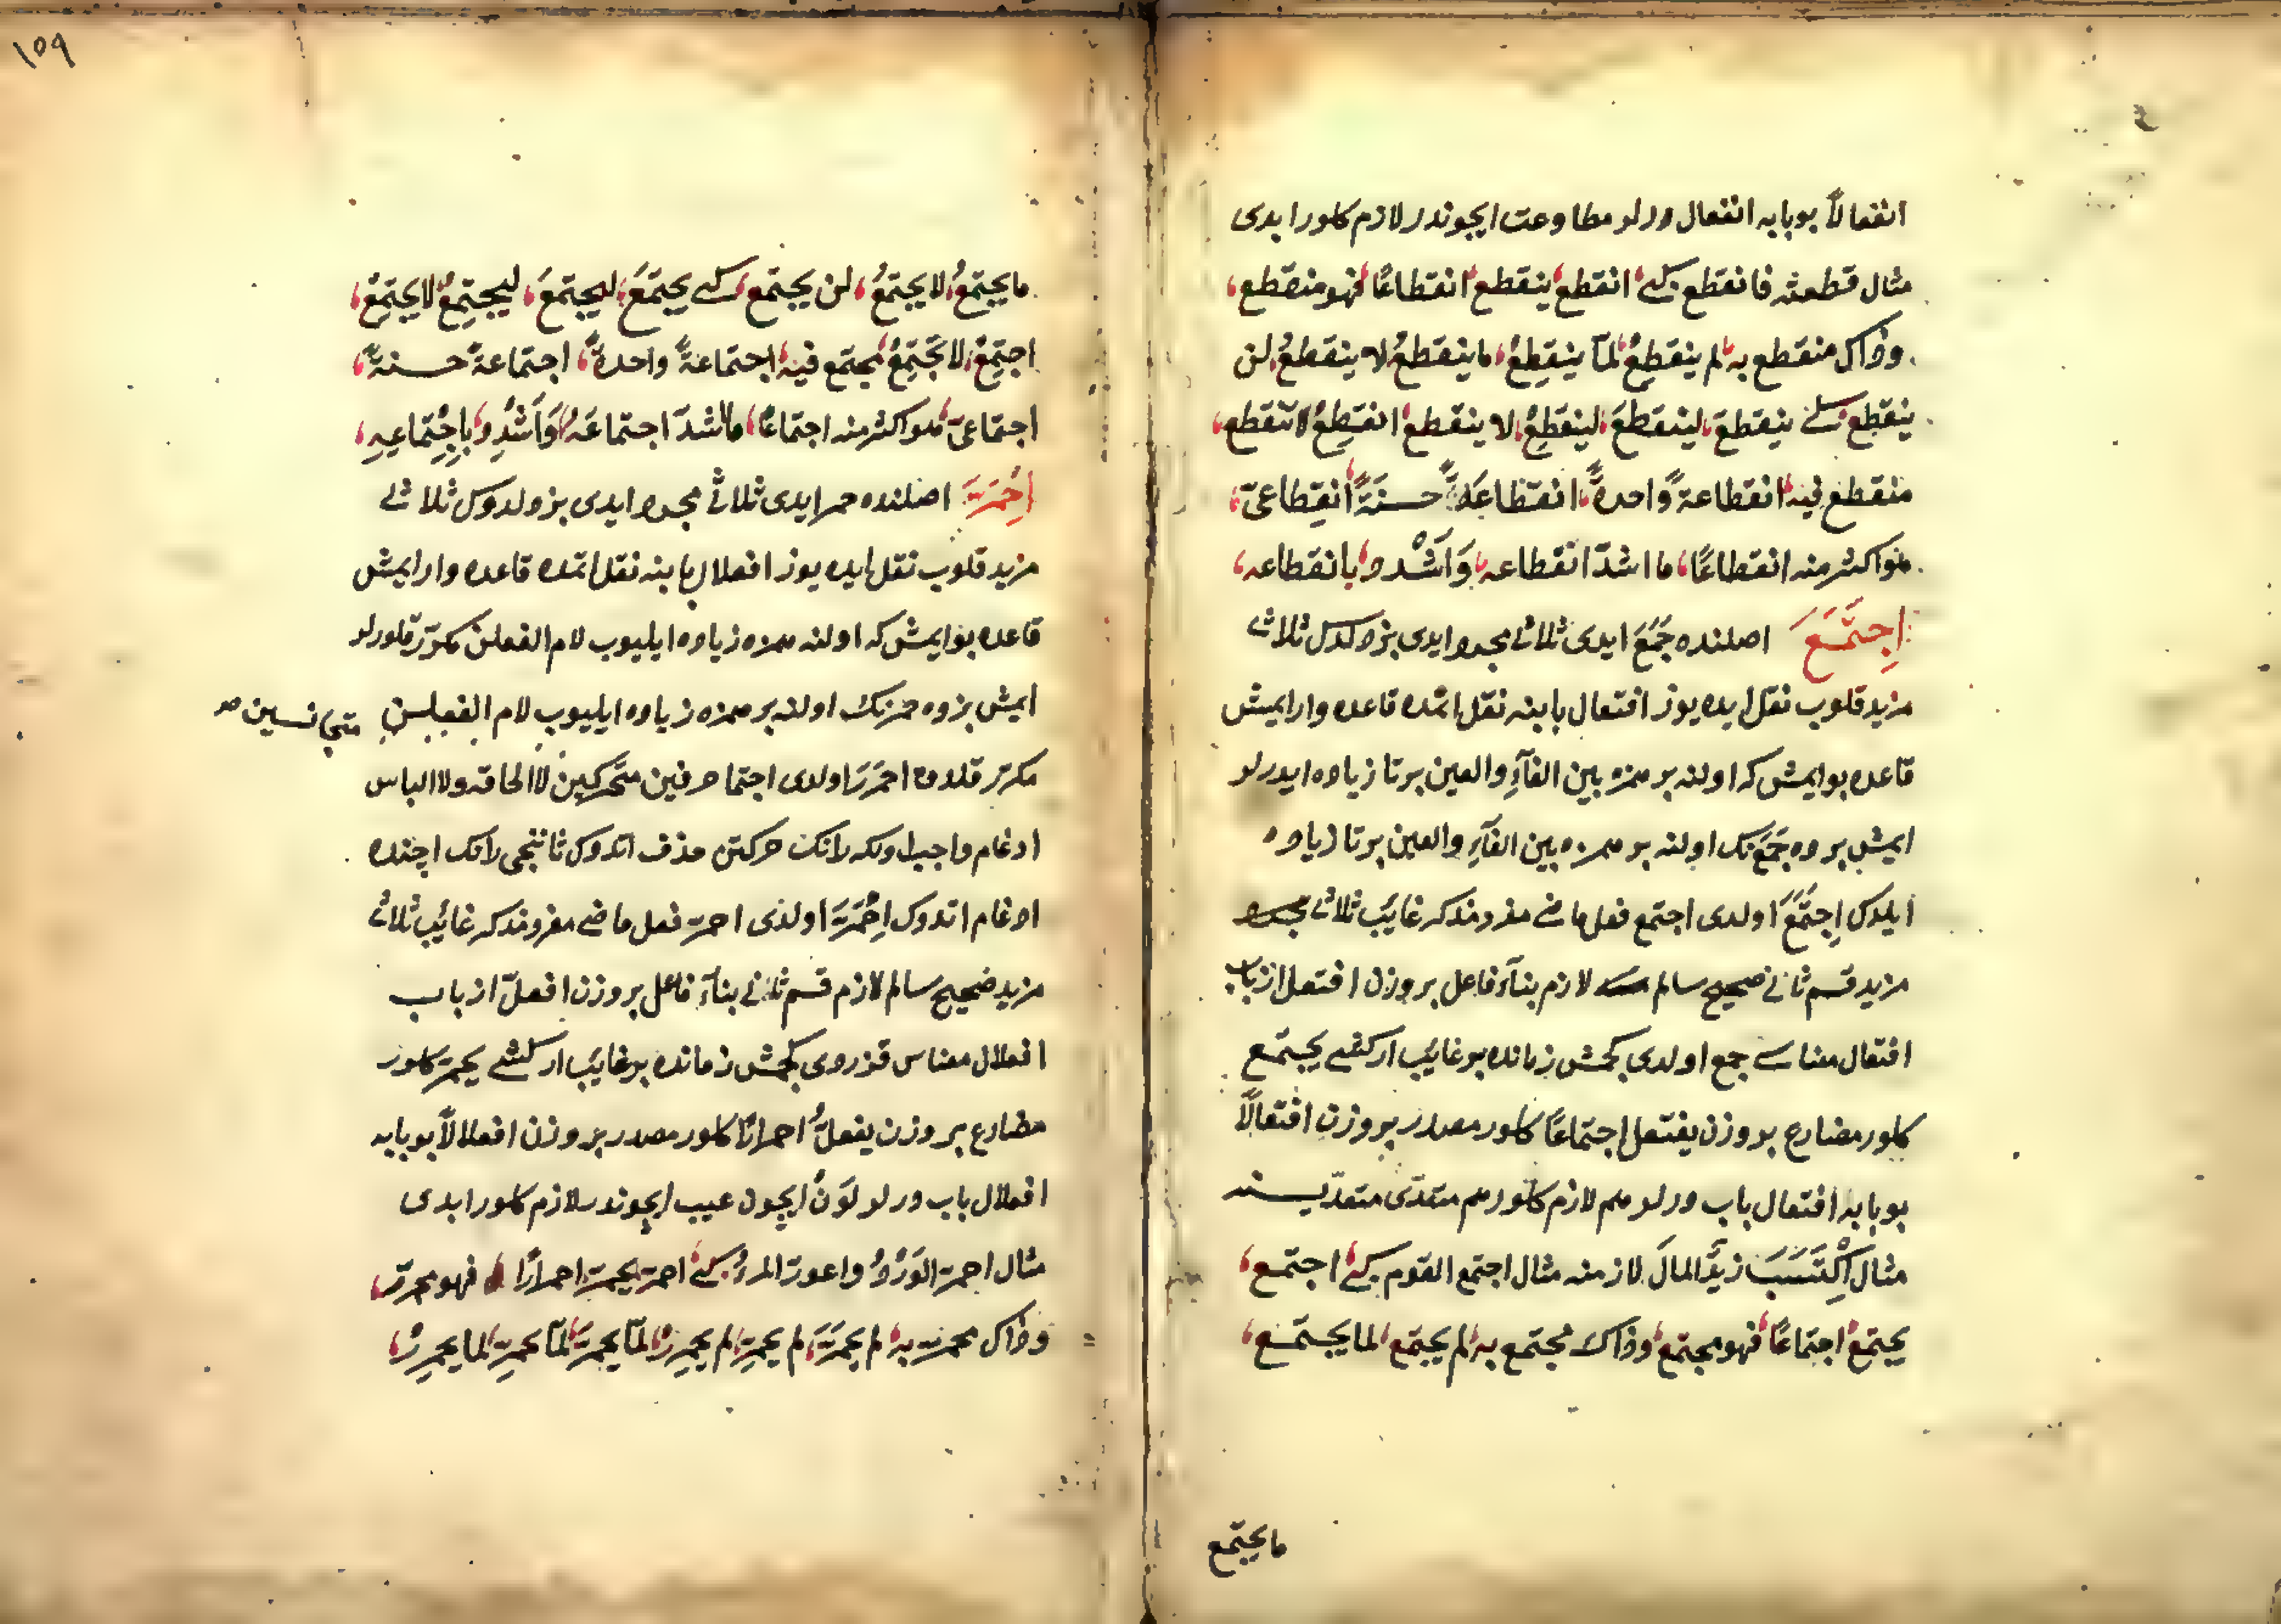 انفعالاً بو بابه انفعال درلر مطاوعت ايچوندر لازم كلور ابدى
مثال قطعته فانقطع كبى انقطع ينقطع انقطاعًا فهو منقطع
وذاك منقطع به لم ينقطعْ لمّا ينقطعْ ما ينقطعُ لا ينقطعُ لن
ينقطع كى ينقطعَ لينقطعَ لينقطعْ لا ينقطعْ انقطعْ لا تنقطع
منقطع فيه انقطاعةً واحدةً انقطاعةً حسنةً انقطاعىّ
هو اكثر منه انقطاعًا ما اشدّ انقطاعه وَاَشْدد بانقطاعه
اِجتَمَعَ اصلنده جَمَعَ ايدى ثلاثى مجرد ايدى بز دلدك ثلاثى
مزيد قلوب نقل ايده يوز افتعال بابنه نقل اتمده قاعده وار ايمش
قاعده بو ايمش كه اولنه بر همزه بين الفآءِ والعين بر تا زياده ايدرلر
ايمش بز ده جَمَعَ نك اولنه بر همزه بين الفآءِ والعين بر تا زياده
ايلدك اِجتَمَعَ اولدى اجتمع فعل ماضى مفرد مذكر غائب ثلاثى
مزيد قسم ثانى صحيح سالم لازم بنآء فاعل بر وزن افتعل از باب
افتعال معناسى جمع اولدى كچمش زمانده بر غائب ار كشى يجتمع
كلور مضارع بر وزن يفتعل اجتماعًا كلور مصدر بر وزن افتعالاً
بو بابه افتعال باب درلر هم لازم كلور هم متعدّى متعدّيسنه
مثال اِكْتَسَبَ زيدٌ المالَ لازمنه مثال اجتمع القوم كبى اجتمع
يجتمعُ اجتماعًا فهو مجتمع وذاك مجتمع به لم يجتمع لما يجتمع
ما يجتمع
١٥٩
ما يجتمعُ لا يجتمعُ لن يجتمع كى يجتمعَ ليجتمعَ ليجتمعْ لا يجتمعْ
اجتمِعْ لا تجتمِعْ مجتمع فيه اجتماعةً واحدةً اجتماعةً حسنةً
اجتماعىّ هو اكثر منه اجتماعًا ما اشدّ اجتماعَهُ وَاَشْدِد بِاِجْتِماعِهِ
اِحْمَرَّ اصلنده حمر ايدى ثلاثى مجرد ايدى بز دلدوك ثلاثى
مزيد قلوب نقل ايده يوز افعلال بابنه نقل اتمده قاعده وار ايمش
قاعده بو ايمش كه اولنه همزه زياده ايليوب لام الفعلن مكرّر قلورلر
ايمش بز ده حمرنك اولنه بر همزه زياده ايليوب لام الفعلن متجانسين صح
مكرر قلدق احمَرَرَ اولدى اجتما حرفين متحركين لا الحاقه ولا الباس
ادغام واجب اولدى رانك حركتن حذف اتدوك ثانيجى رانك اچنده
ادغام اتدوك اِحْمَرَّ اولدى احمرّ فعل ماضى مفرد مذكر غائب ثلاثى
مزيد صحيح سالم لازم قسم ثانى بنآء فاعل بر وزن افعلّ از باب
افعلال معناسى قزردى كچمش زمانده بر غائب ار كشى يحمرّ كلور
مضارع بر وزن يفعلّ احمرارًا كلور مصدر بر وزن افعلالاً بو بابه
افعلال باب درلر لَوْن ايچون عيب ايچوندر لازم كلور ابدى
مثال احمرّ الوَرْدُ واعورّ المرءُ كبى احمرّ يحمرّ احمرارًا فهو محمرّ
وذاك محمرّ به لم يحمرَّ لم يحمرِّ لم يحمررْ لمّا يحمرَّ لمّا يحمرِّ لما يحمررْ